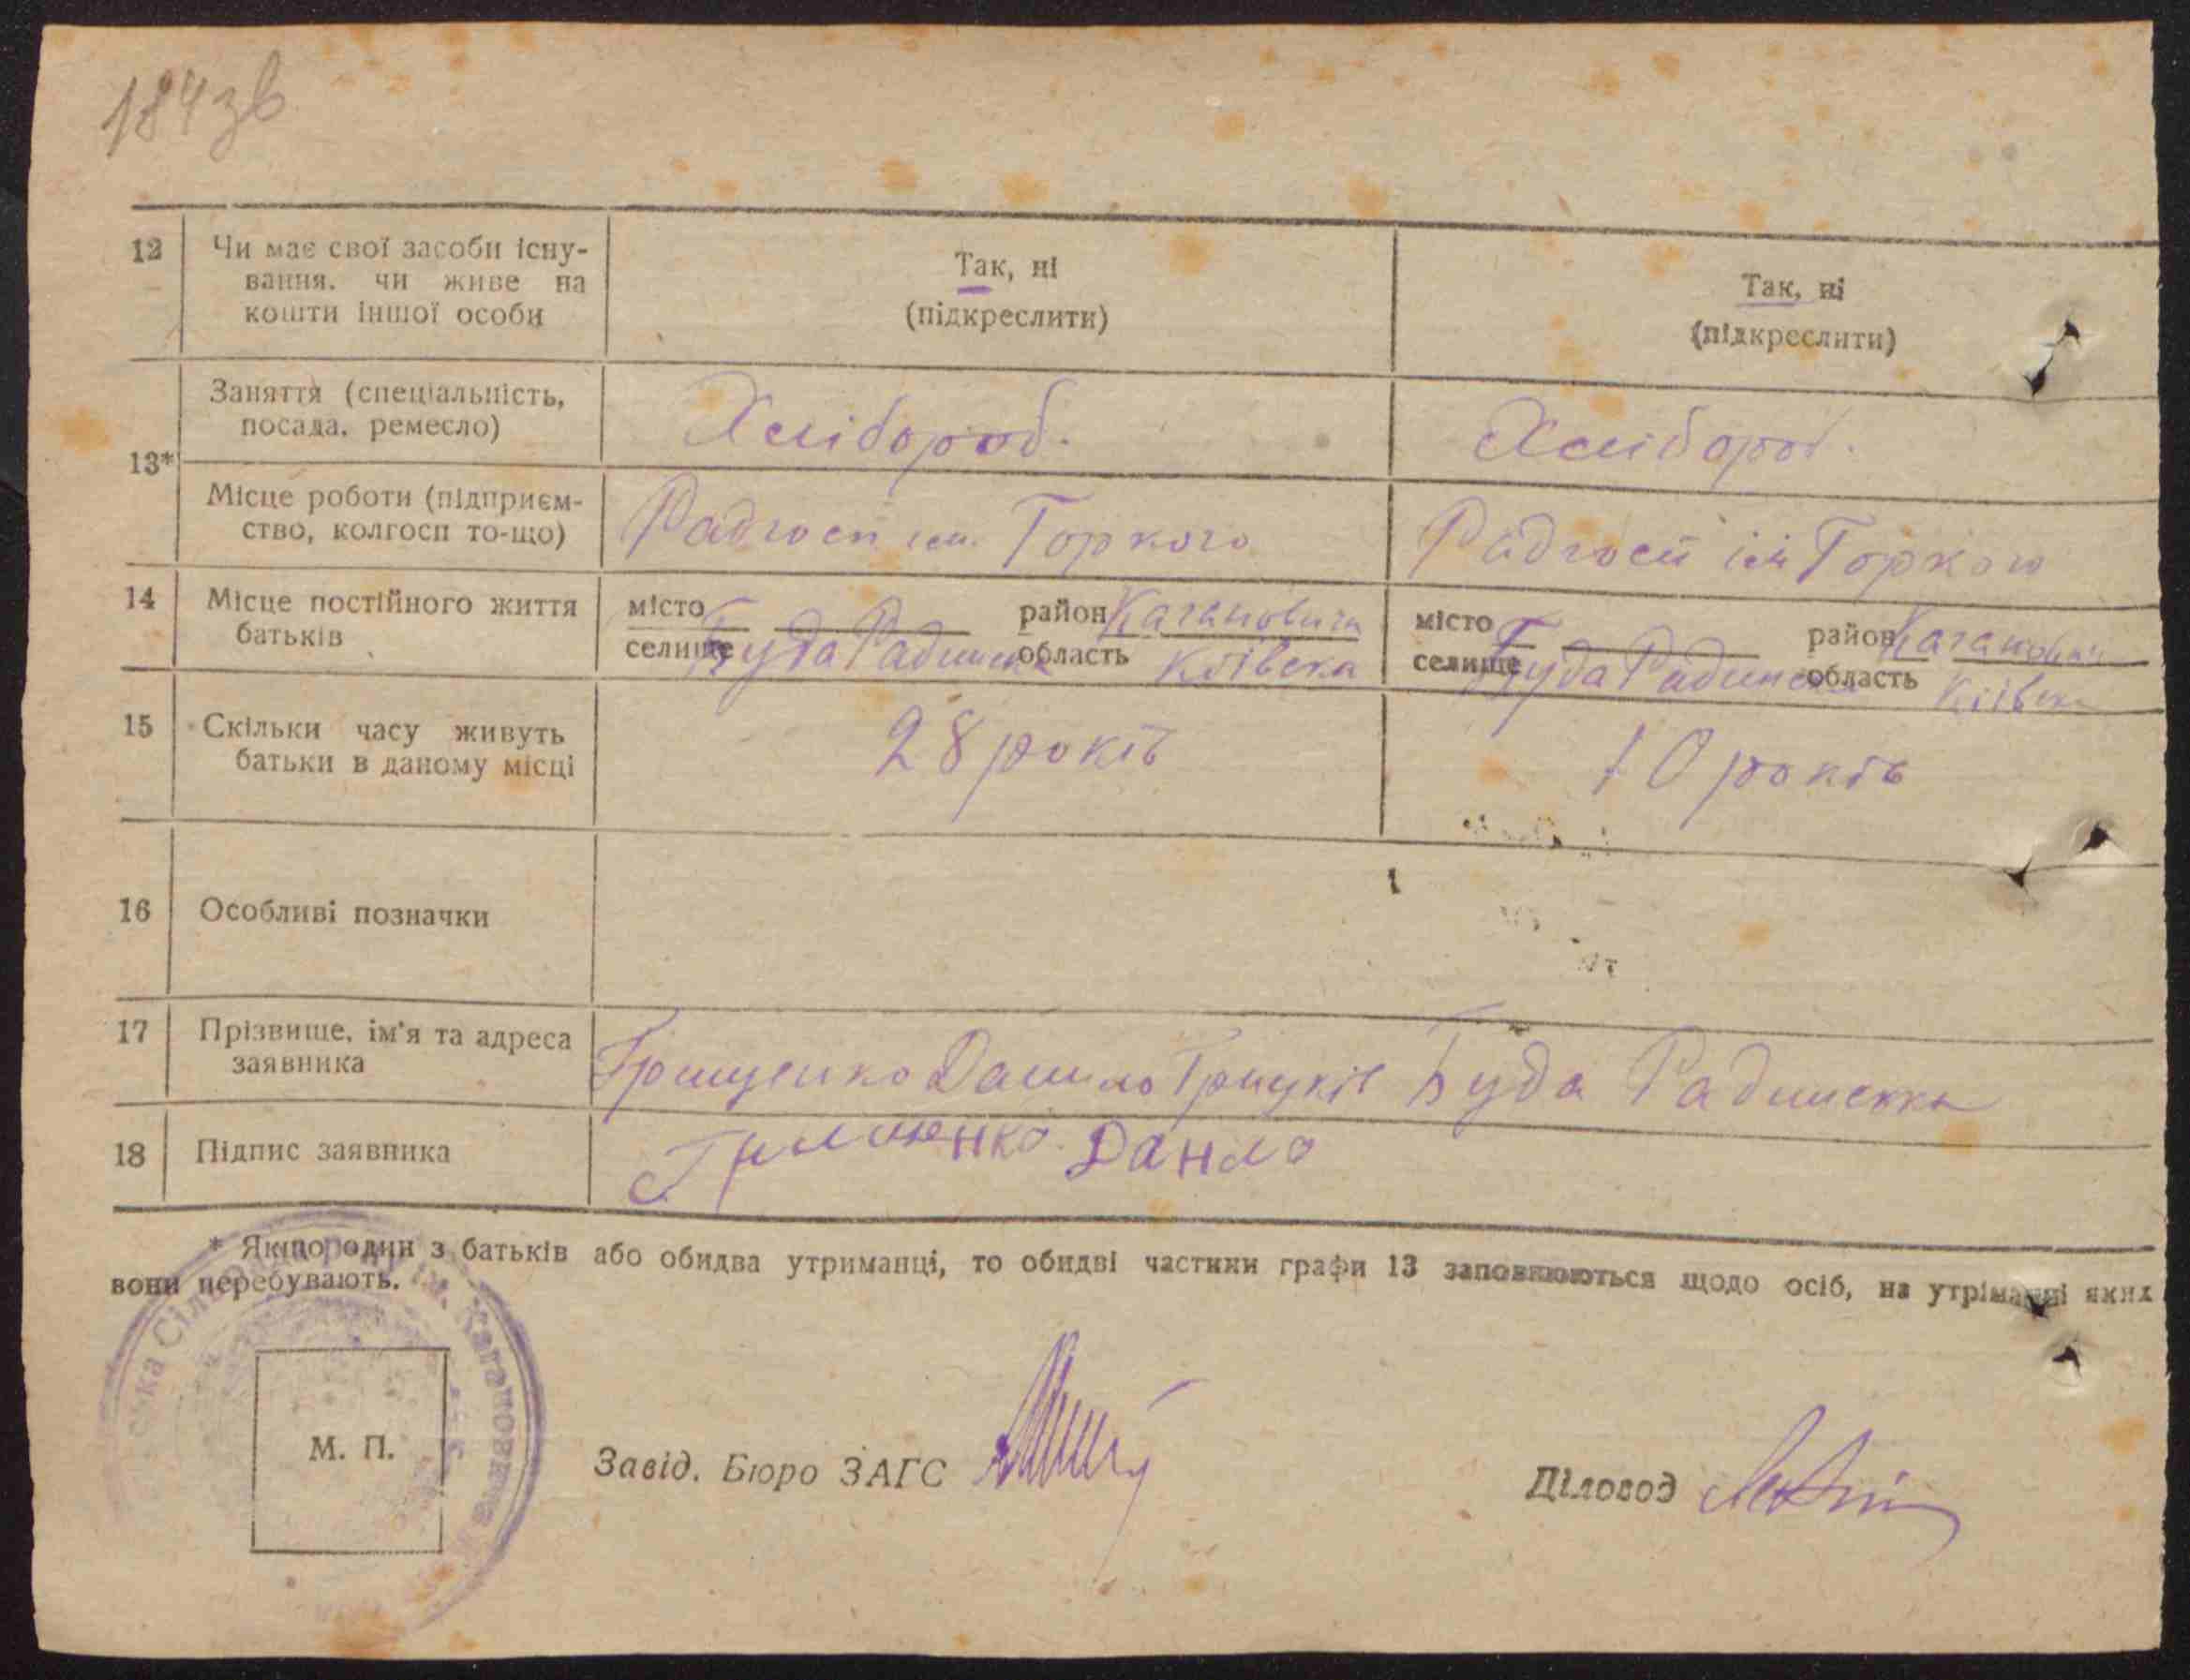 184 зв
12 Чи має свої засоби існу- Так, ні Так, ні
вання, чи живе на (підкреслити) (підкреслити)
кошти іншої особи
13* Заняття (спеціальність, Хлібороб. Хлібороб.
посада, ремесло)
Місце роботи (підприєм- Радгосп ім. Горкого Радгосп ім Горкого
ство, колгосп то-що)
14 Місце постійного життя місто район Кагановича місто район Каганович
батьків селище Буда Радинська область Київська селище Буда Радинська область Київська
15 Скільки часу живуть 28 років 10 років
батьки в даному місці
16 Особливі позначки
17 Прізвище, ім'я та адреса Грищенко Данило Грицків Буда Радинська
заявника
18 Підпис заявника Данило
* Якщо один з батьків або обидва утриманці, то обидві частини графи 13 заповнюються щодо осіб, на утріманні яких
вони перебувають.
ська Сіль ім. Кагановича
М. П.
Завід. Бюро ЗАГС
Діловод